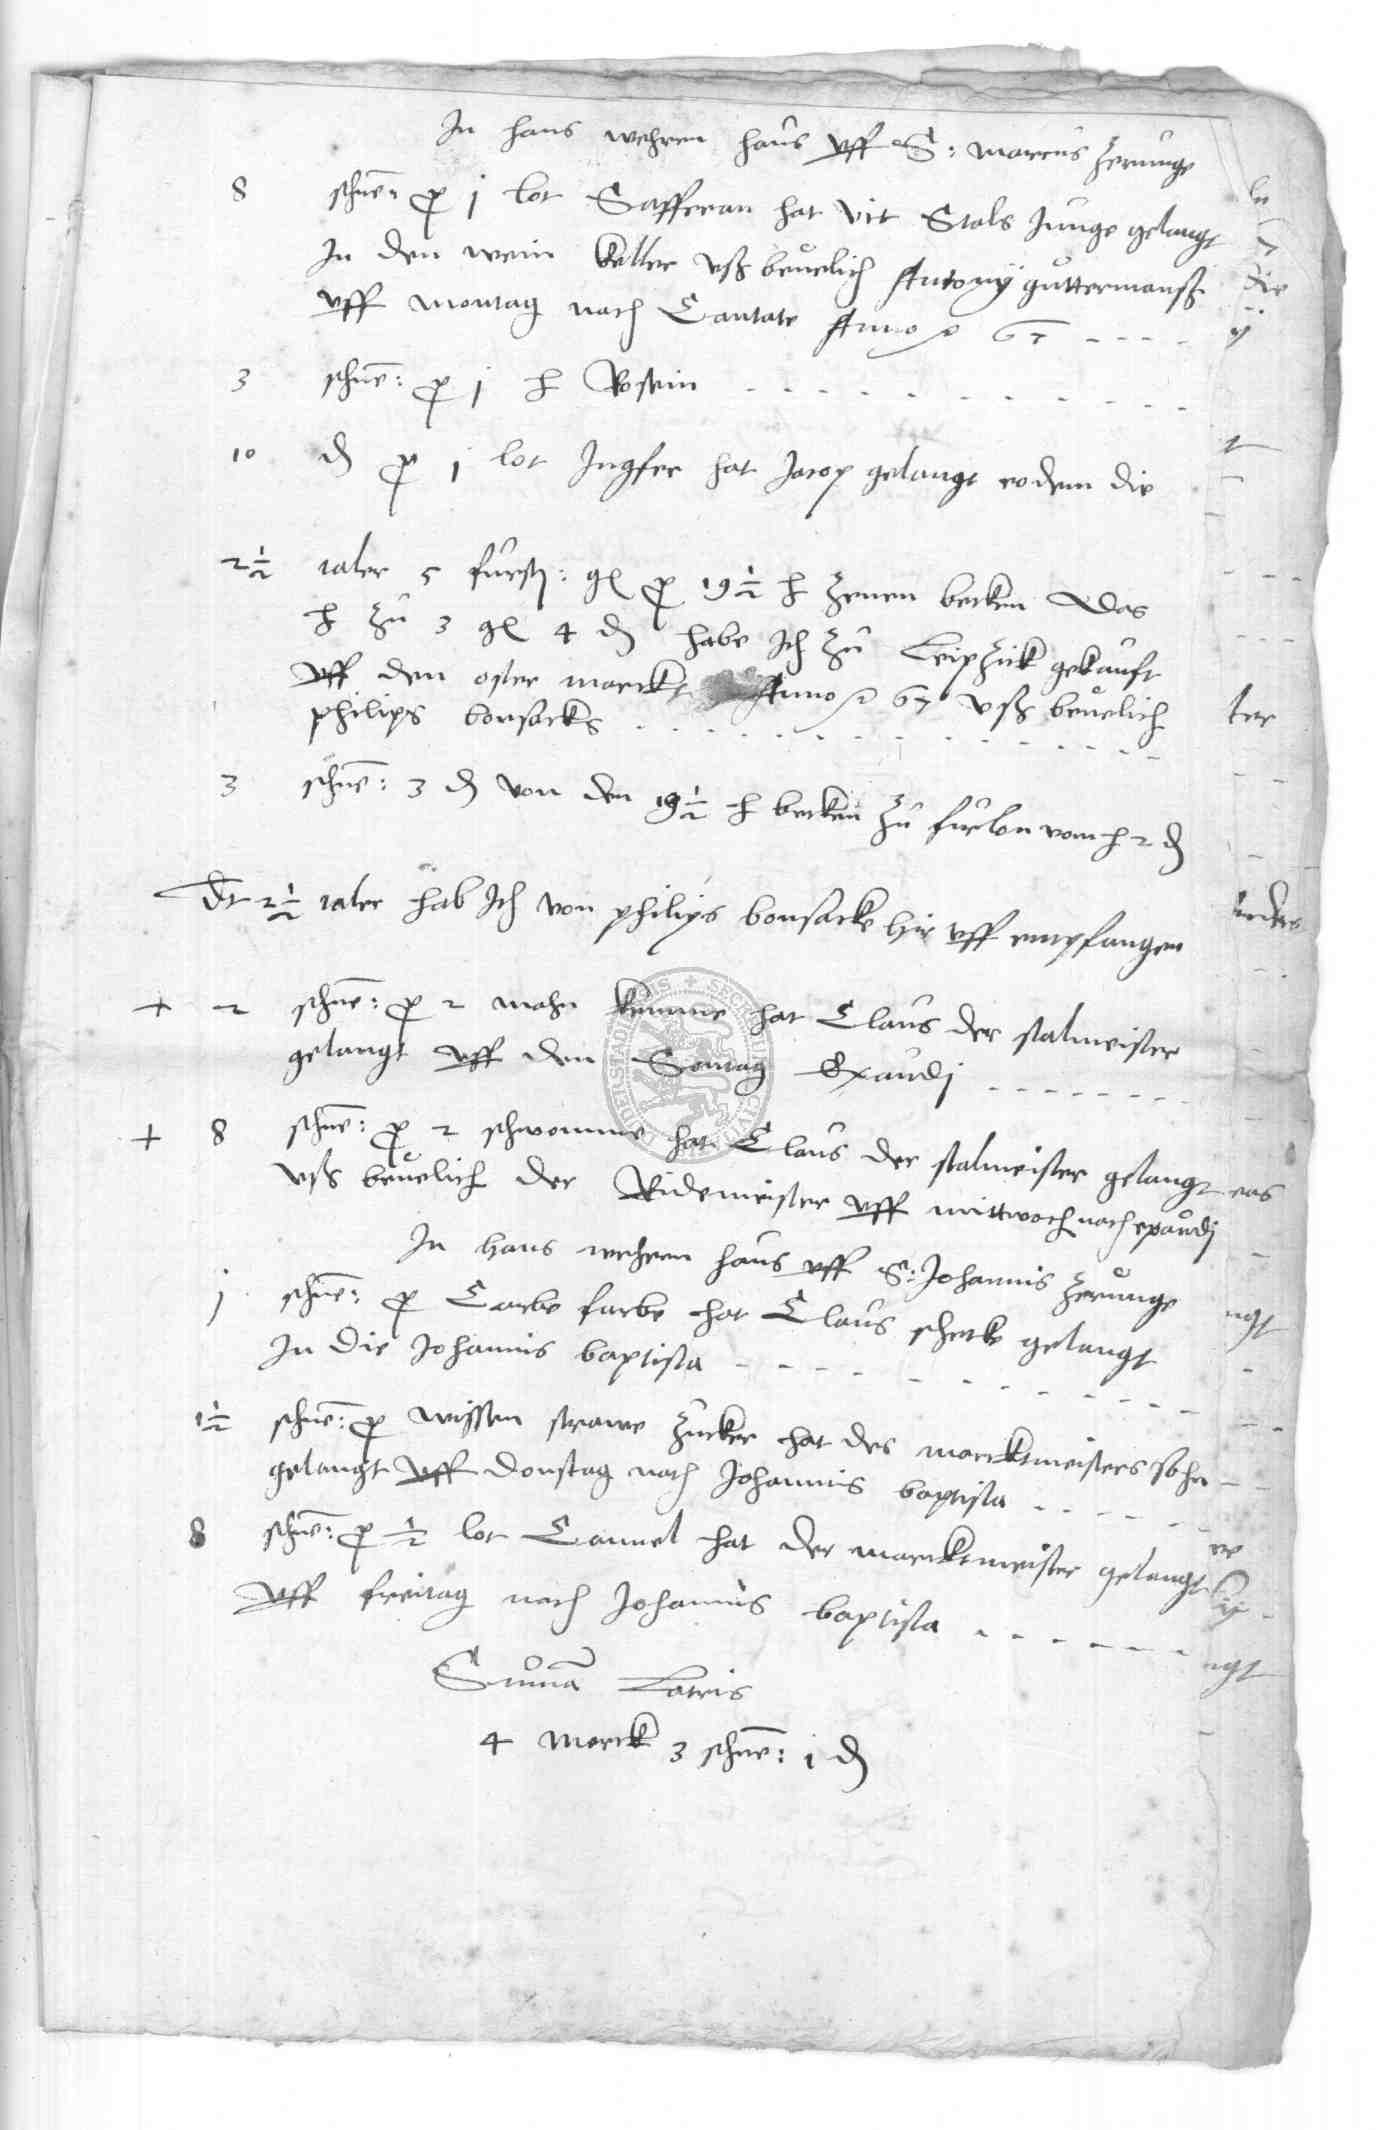 In hans wehren haus vff S: marcus Zerunge
8 schne: p j lot Safferan hat Vit Stals Junge gelangt
In den wein keller vß beuelich Antonÿ guttermanß
vff montag nach Cantate Anno 67
3 schne: p j lb Rosein
10 d p 1 lot Ingfer hat Jacop gelangt eodem die
2 1/2 taler 5 fursth: gl p 19 1/2 lb Zenen becken Das
lb zu 3 gl 4 d habe Ich zu Leipzick gekauft
vff den oster marckt Anno 67 vß beuelich
philips bonsacks
3 schne: 3 d von den 19 1/2 lb becken zu furlon vom lb 2 d
Dt 2 1/2 taler hab Ich von philips bonsacke hir vff empfangen
+ 2 schne: p 2 mahn kemme hat Claus der stalmeister
gelangt vff den Sontag Exaudj
+ 8 schne: p 2 schwomme hat Claus der stalmeister gelangt
vß beuelich der Ridemeister vff mittwoch nach exaudj
In hans wehren haus vff S: Johannis Zerunge
j schne: p Carbe farbe hat Claus schenke gelangt
In die Johannis baptista
1 1/2 schne: p wissen strawe Zucker hat des marcktmeisters sohn
gelangt vff donstag nach Johannis baptista
8 schne: p 1/2 lot Cannel hat der marcktmeister gelangt
vff freitag nach Johannis baptista
Suma Lateris
4 marck 3 schne: 1 d